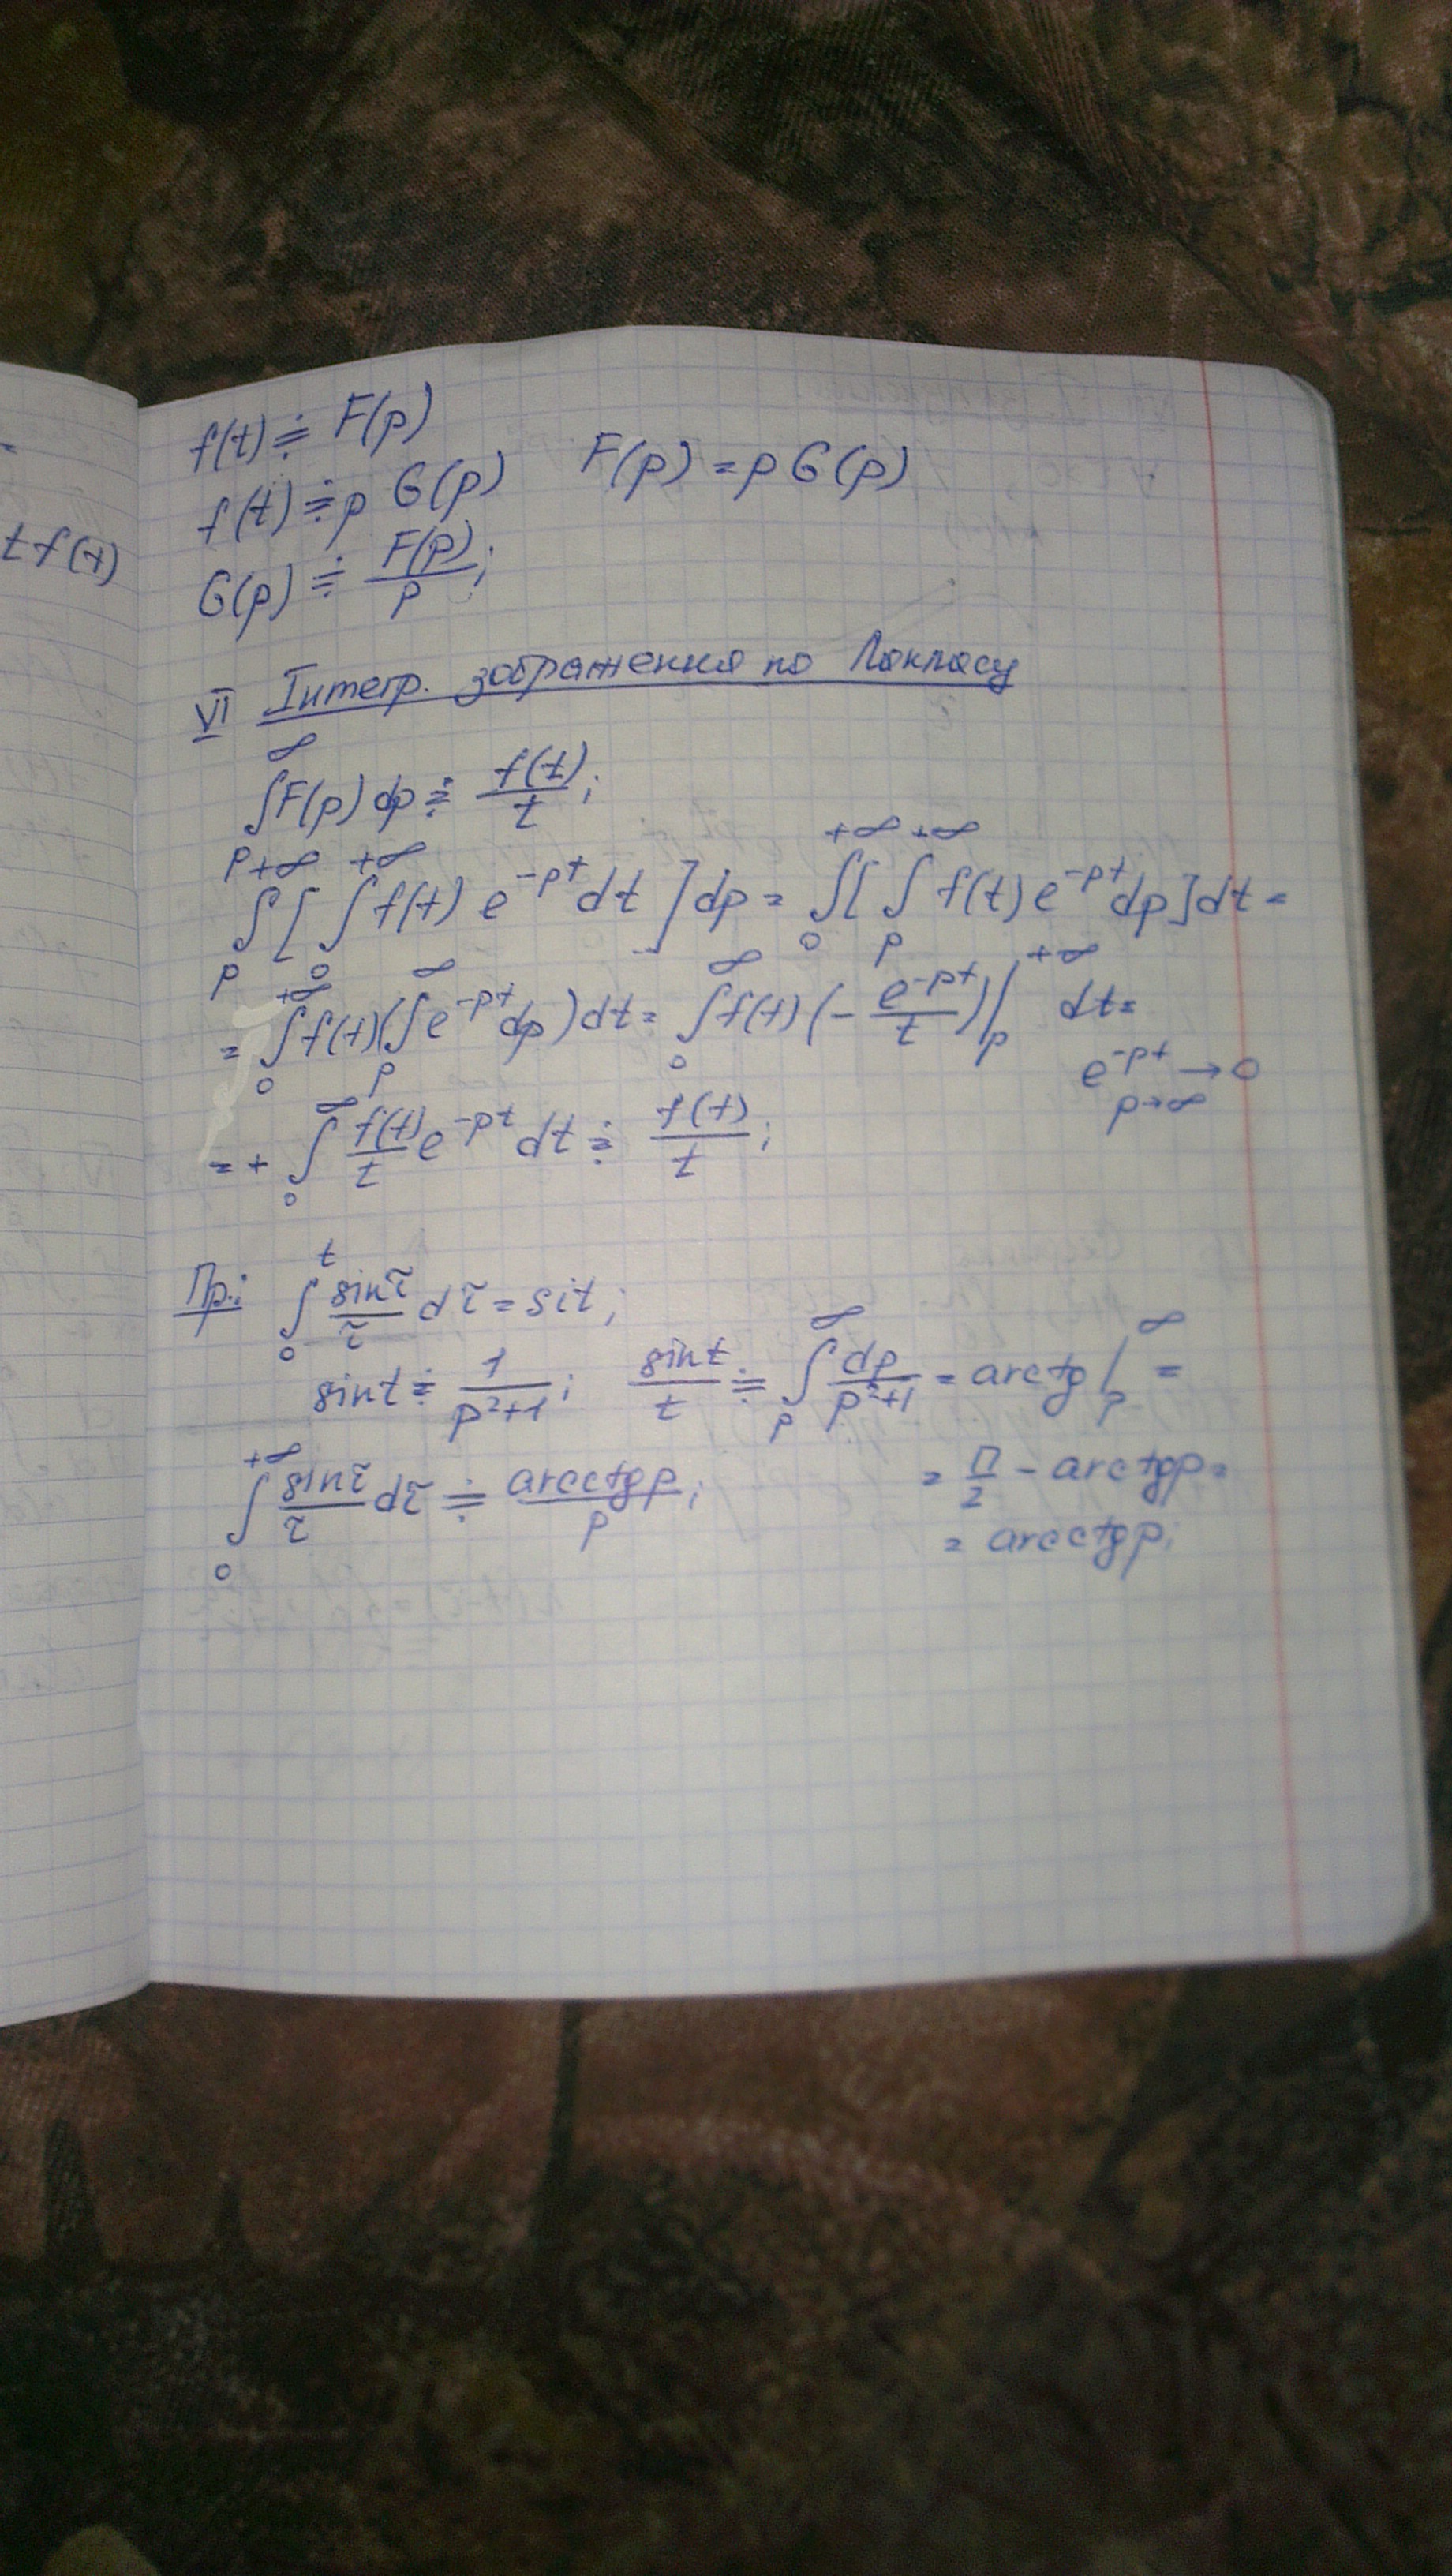 t f(t)
f(t) ≑ F(p)
f(t) ≑ p G(p)   F(p) = p G(p)
G(p) ≑ F(p)/p ;
VI Інтегр. зображення по Лапласу
∫_p^∞ F(p) dp ≑ f(t)/t ;
∫_p^{+∞} [ ∫_0^{+∞} f(t) e^{-pt} dt ] dp = ∫_0^{+∞} [ ∫_p^{+∞} f(t) e^{-pt} dp ] dt =
= ∫_0^{+∞} f(t) ( ∫_p^∞ e^{-pt} dp ) dt = ∫_0^∞ f(t) (- e^{-pt}/t) |_p^{+∞} dt =
e^{-pt} → 0
p→∞
= + ∫_0^∞ f(t)/t e^{-pt} dt ≑ f(t)/t ;
Пр.: ∫_0^t sinτ/τ dτ = sit ;
sint ≑ 1/(p²+1) ;   sint/t ≑ ∫_p^∞ dp/(p²+1) = arctg |_p^∞ =
= П/2 - arctgp =
= arcctgp ;
∫_0^{+∞} sinτ/τ dτ ≑ arcctgp/p ;